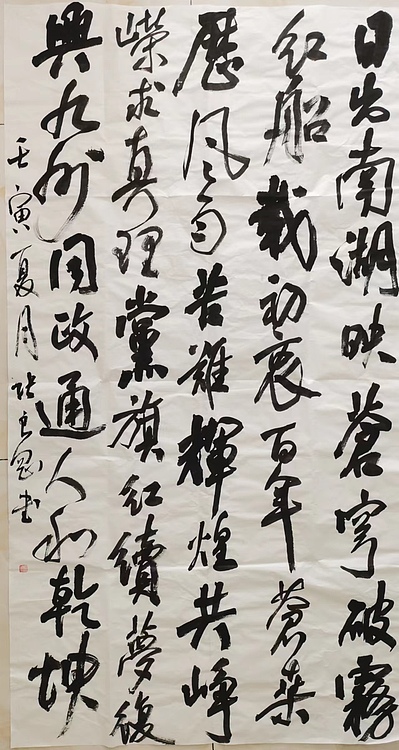 日出南湖映蒼穹破霧
红船載初衷百年蒼桑
歷风雨苦難輝煌共峥
嶸求真理黨旗红續夢復
興九州同政通人和乾坤
壬寅夏月 张书